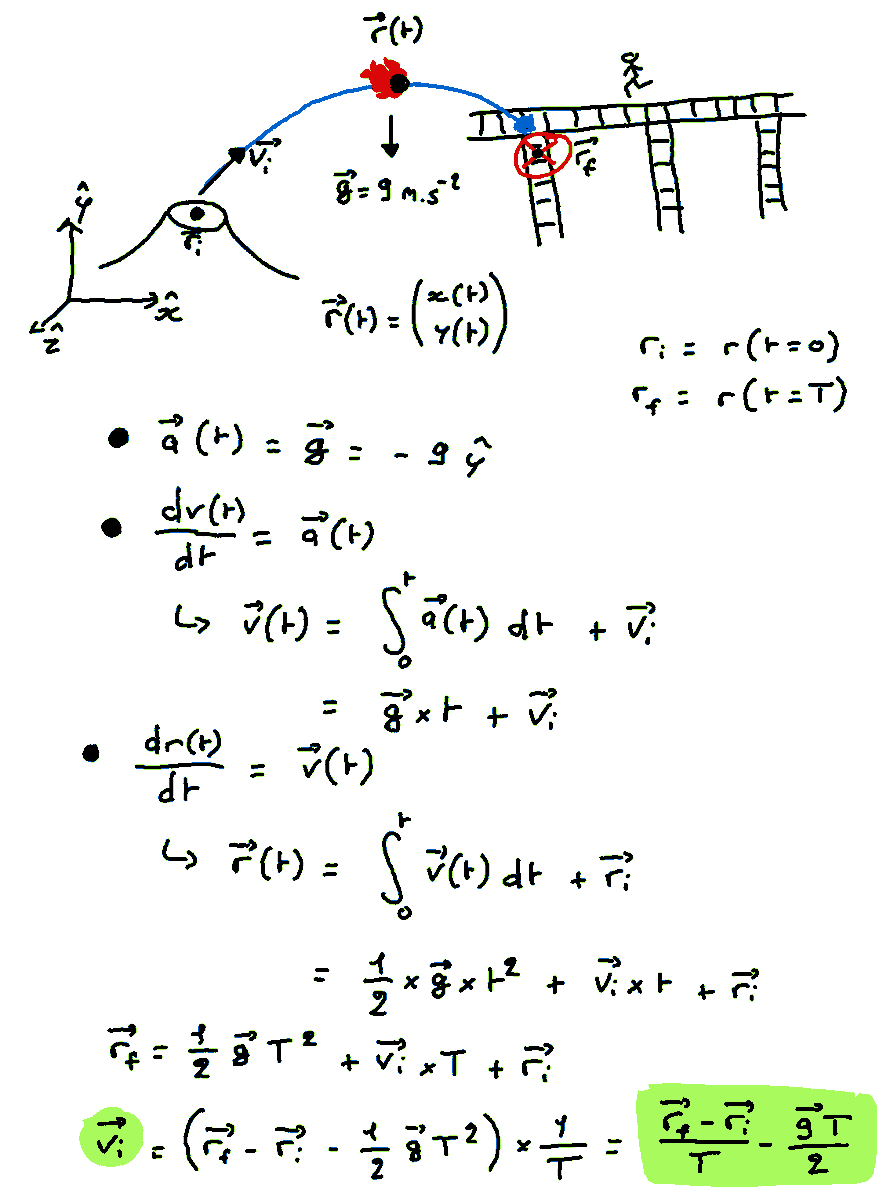 r⃗(t)
v⃗ᵢ
r⃗_f
g⃗ = 9 m.s⁻²
ŷ
r⃗ᵢ
x̂
ẑ
r⃗(t) = (x(t) y(t))
rᵢ = r(t=0)
r_f = r(t=T)
• a⃗(t) = g⃗ = - 9 ŷ
• dv(t)/dt = a⃗(t)
↳ v⃗(t) = ∫₀ᵗ a⃗(t) dt + v⃗ᵢ
= g⃗ × t + v⃗ᵢ
• dr(t)/dt = v⃗(t)
↳ r⃗(t) = ∫₀ᵗ v⃗(t) dt + r⃗ᵢ
= 1/2 × g⃗ × t² + v⃗ᵢ × t + r⃗ᵢ
r⃗_f = 1/2 g⃗ T² + v⃗ᵢ × T + r⃗ᵢ
v⃗ᵢ = (r⃗_f - r⃗ᵢ - 1/2 g⃗ T²) × 1/T = (r⃗_f - r⃗ᵢ)/T - g⃗T/2